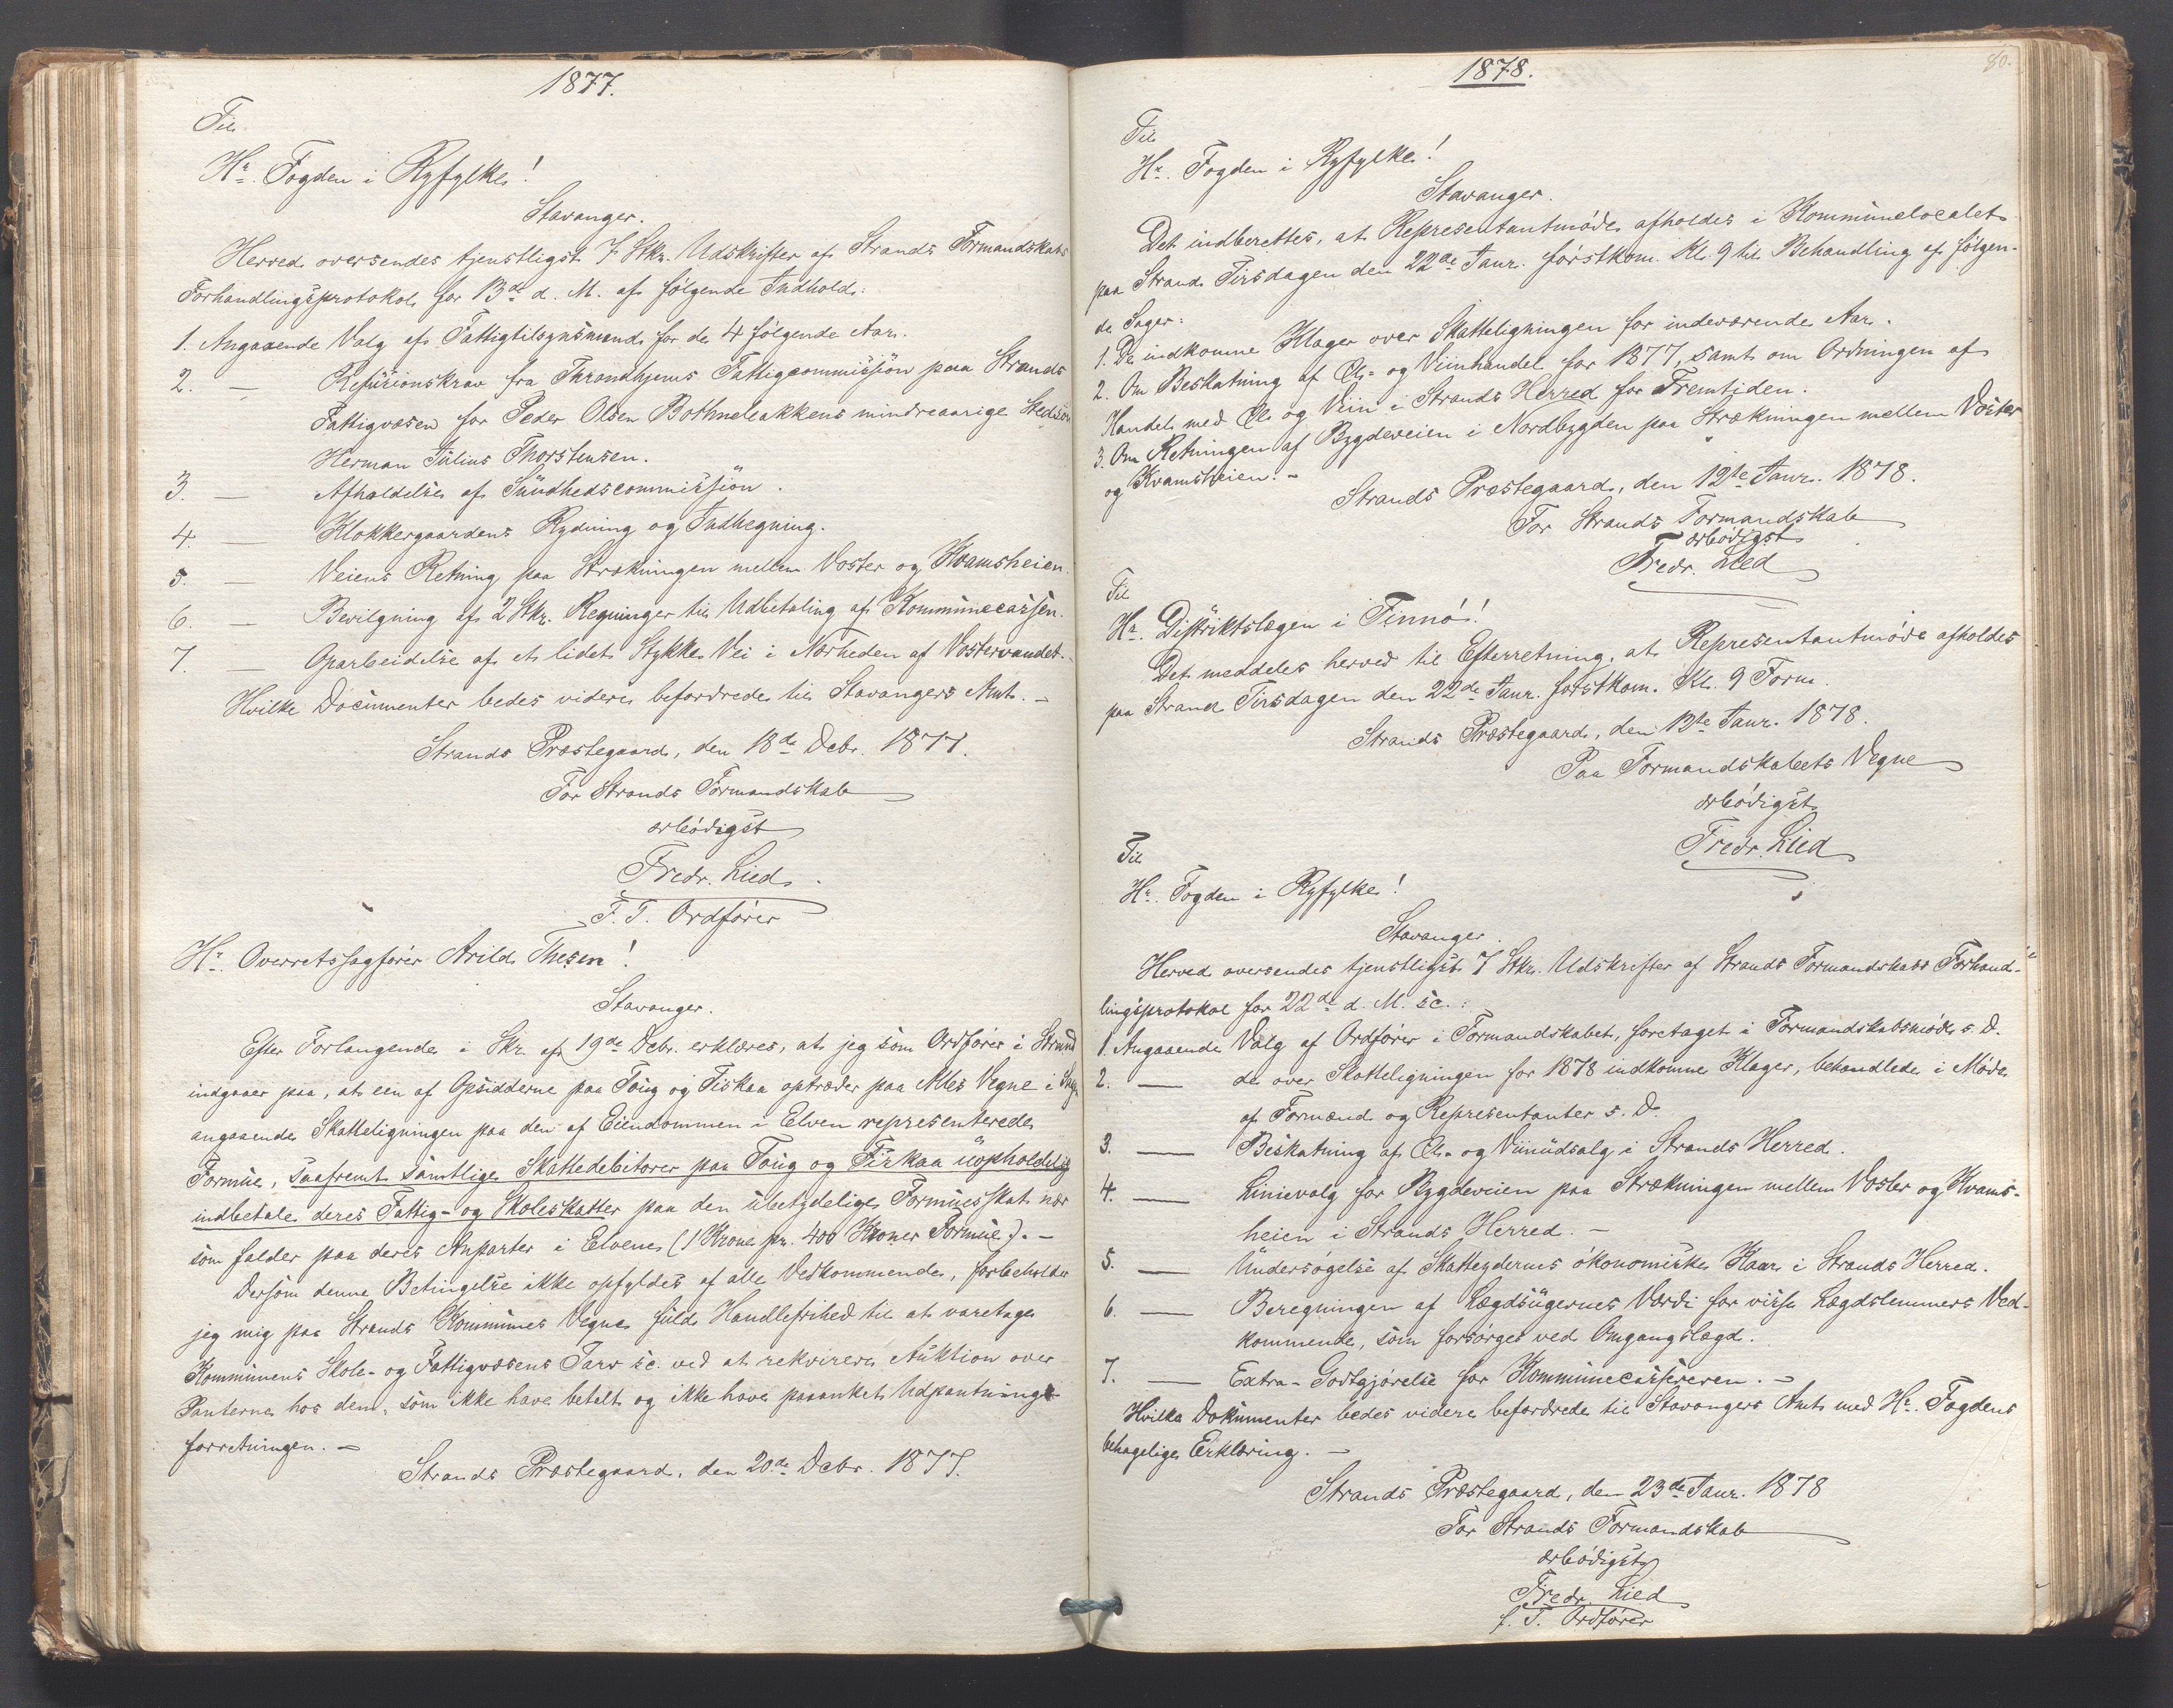 1877.
Til
Hr. Fogden i Ryfylke!
Stavanger.
Herved oversendes tjenstligst 7 Stkr. Udskrifter af Strands Formandskabs
Forhandlingsprotokol for 13de d. M. af følgende Indhold:
1. Angaaende Valg af Fattigtilsynsmænd for de 4 følgende Aar.
2. — Refusionskrav fra Throndhjems Fattigcommission paa Strands
Fattigvæsen for Peder Olsen mindreaarige Stedsøn
Herman Julius Thorstensen.
3. — Afholdelse af Sundhedscommission.
4. — Klokkergaardens Rydning og Indhegning.
5. — Veiens Retning paa Strækningen mellem Voster og Kvamsheien.
6. — Bevilgning af 2 Stkr. Regninger til Udbetaling af Kommunecassen.
7. — Oparbeidelse af et lidet Stykke Vei i Nærheden af Vostervandet.
Hvilke Documenter bedes videre befordrede til Stavangers Amt. —
Strands Præstegaard, den 18de Debr. 1877.
For Strands Formandskab
ærbødigst
Fredr. Lied.
F. T. Ordfører
Hr. Overretssagfører Arild Thesen!
Stavanger.
Efter Forlangende i Skr. af 19de Debr. erklæres, at jeg som Ordfører i Strand
indgaaer paa, at een af Opsidderne paa Toug og Fiskaa optræder paa Alles Vegne i
angaaende Skatteligningen paa den af Eiendommen i Elven representerede
Formue, saafremt samtlige Skattedebitorer paa Toug og Fiskaa uopholdelig
indbetale deres Fattig- og Skoleskatter paa den ubetydelige Formuesskat nær
som falder paa deres Anparter i Elvene (1 Krone pr. 400 Kroner Formue). —
Dersom denne Betingelse ikke opfyldes af alle Vedkommende, forbeholder
jeg mig paa Strands Kommunes Vegne fuld Handlefrihed til at varetage
Kommunens Skole- og Fattigvæsens Tarv &c. ved at rekvirere Auktion over
Panterne hos dem, som ikke have betalt og ikke have paaanket Udpantnings-
forretningen. —
Strands Præstegaard, den 20de Debr. 1877.
1878.
80.
Til
Hr. Fogden i Ryfylke!
Stavanger.
Det indberettes, at Representantmøde afholdes i Kommunelocalet
paa Strand Tirsdagen den 22de Janr. førstkom. Kl. 9 til Behandling af følgen-
de Sager:
1. De indkomne Klager over Skatteligningen for indeværende Aar.
2. Om Beskatning af Øl- og Viinhandel for 1877, samt om Ordningen af
Handel med Øl og Viin i Strands Herred for Fremtiden.
3. Om Retningen af Bygdeveien i Nordbygden paa Strækningen mellem Voster
og Kvamsheien. —
Strands Præstegaard, den 12te Janr. 1878.
For Strands Formandskab
ærbødigst
Fredr. Lied
Til
Hr. Distriktslægen i Finnø!
Det meddeles herved til Efterretning, at Representantmøde afholdes
paa Strand Tirsdagen den 22de Janr. førstkom. Kl. 9 Form.
Strands Præstegaard, den 12te Janr. 1878.
Paa Formandskabets Vegne
ærbødigst
Fredr. Lied
Til
Hr. Fogden i Ryfylke!
Stavanger.
Herved oversendes tjenstligst 7 Stkr. Udskrifter af Strands Formandskabs Forhand-
lingsprotokol for 22de d. M. &c.:
1. Angaaende Valg af Ordfører i Formandskabet, foretaget i Formandskabsmøde s. D.
2. — de over Skatteligningen for 1878 indkomne Klager, behandlede i Møde
af Formænd og Representanter s. D.
3. — Beskatning af Øl- og Viinudsalg i Strands Herred.
4. — Linievalg for Bygdeveien paa Strækningen mellem Voster og Kvams-
heien i Strands Herred. —
5. — Undersøgelse af Skatteydernes økonomiske Kaar i Strands Herred.
6. — Beregningen af Lægdsugernes Værdi for visse Lægdslemmers Ved-
kommende, som forsørges ved Omgangslægd.
7. — Extra-Godtgjørelse for Kommunecassereren. —
Hvilke Dokumenter bedes videre befordrede til Stavangers Amt med Hr. Fogdens
behagelige Erklæring. —
Strands Præstegaard, den 23de Janr. 1878
For Strands Formandskab
ærbødigst
Fredr. Lied
f. T. Ordfører